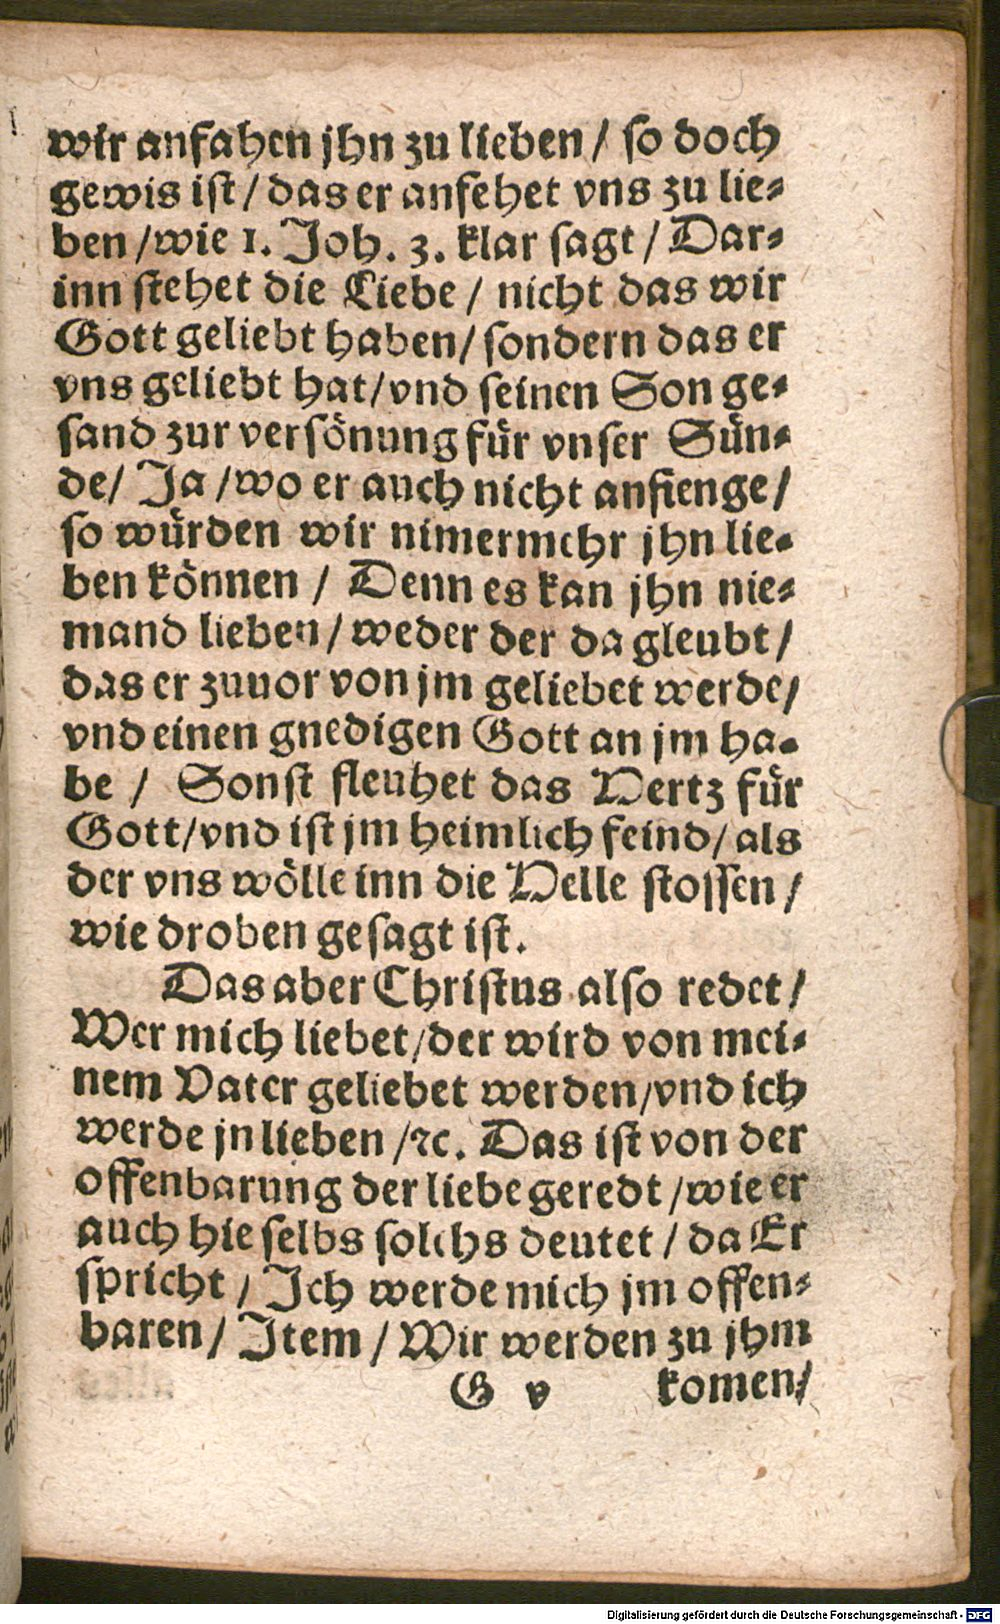 wir anfahen jhn zu lieben / so doch
gewis ist / das er anfehet vns zu lie⸗
ben / wie 1. Joh. 3. klar sagt / Dar⸗
inn stehet die Liebe / nicht das wir
Gott geliebt haben / sondern das er
vns geliebt hat / vnd seinen Son ge⸗
sand zur versönung für vnser Sün⸗
de / Ja / wo er auch nicht anfienge /
so würden wir nimermehr jhn lie⸗
ben können / Denn es kan jhn nie⸗
mand lieben / weder der da gleubt /
das er zuuor von jm geliebet werde /
vnd einen gnedigen Gott an jm ha⸗
be / Sonst fleuhet das Hertz für
Gott / vnd ist jm heimlich feind / als
der vns wölle inn die Helle stossen /
wie droben gesagt ist.
Das aber Christus also redet /
Wer mich liebet / der wird von mei⸗
nem Vater geliebet werden / vnd ich
werde jn lieben / ꝛc. Das ist von der
offenbarung der liebe geredt / wie er
auch hie selbs solchs deutet / da Er
spricht / Ich werde mich jm offen⸗
baren / Item / Wir werden zu jhm
G v komen /
Digitalisierung gefördert durch die Deutsche Forschungsgemeinschaft - DFG